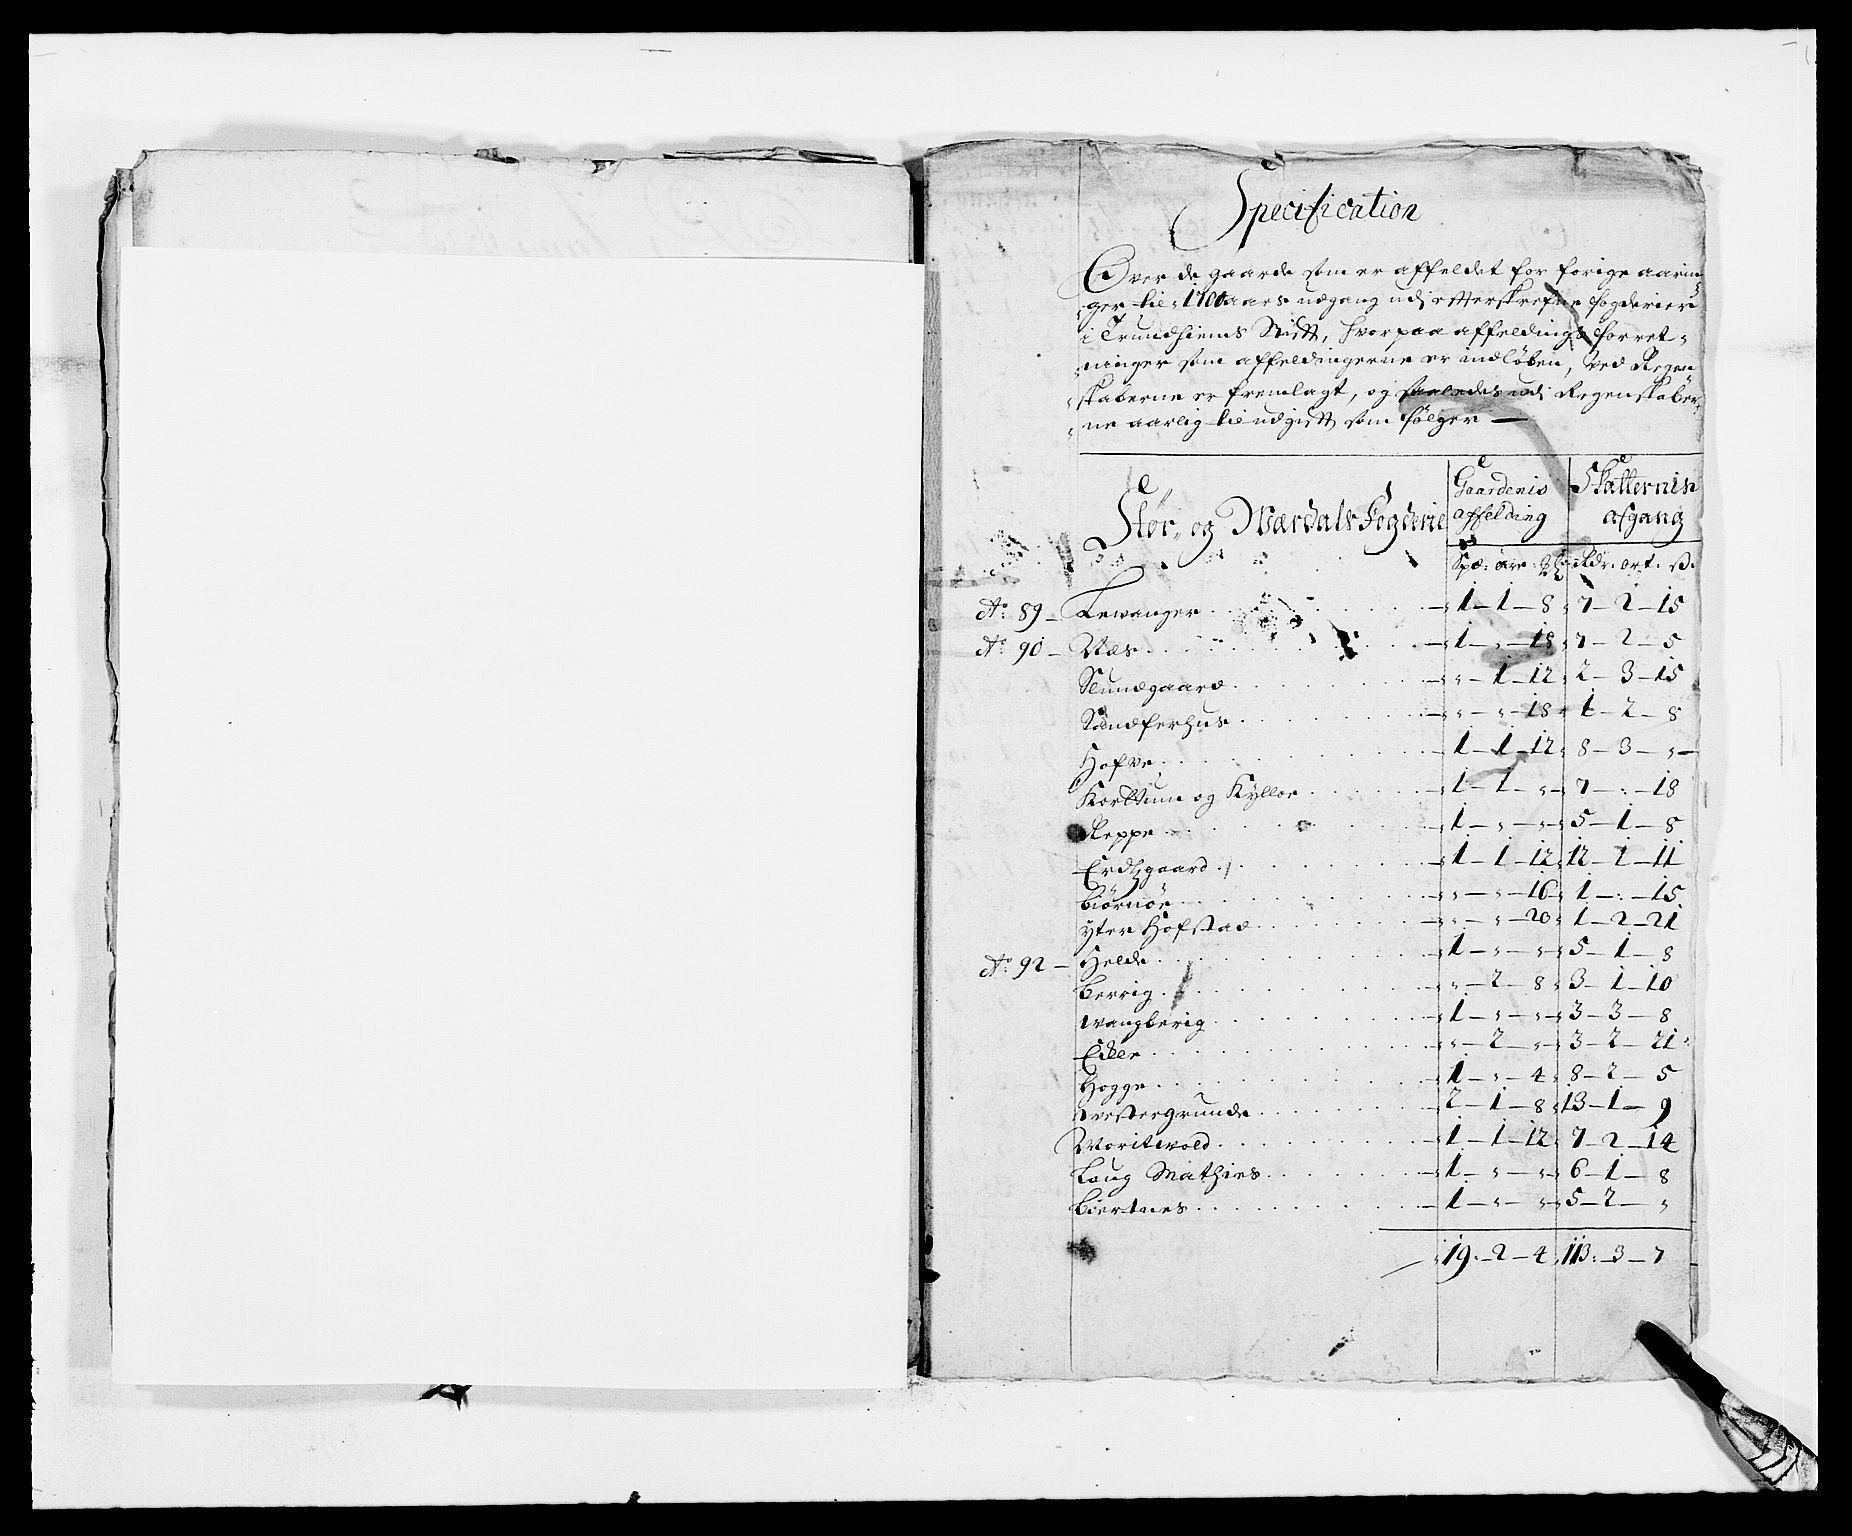 Specification
Over de gaarde som er affeldet for forige aarin-
ger til 1700 aars udgang udi efterskrefne fogderier
i Trundhiems Stift, hvorpaa affeldings forret-
ninger som affeldingerne er indløben, ved Regen-
skaberne er fremlagt, og saaledes udi Regenskaber-
ne aarlig til udgift som følger —
Stør- og Wærdals Fogderie
Gaardenis affelding
Skatternis afgang
Spæ: øre: Rdr: ort: ß:
Ao 89 – Lewanger . . . 1 – 1 – 8 7 – 2 – 15
Ao 90 – Næs . . . 1 – " – 18 7 – 2 – 5
Slundgaard . . . " – 1 – 12 2 – 3 – 15
" – " – 18 1 – 2 – 8
Hofve . . . 1 – 1 – 12 8 – 3 – "
og Kylloe . . . 1 – 1 – " 7 – " – 18
Reppe . . . 1 – " – " 5 – 1 – 8
Erdtzgaard . . . 1 – 1 – 12 12 – 1 – 11
Biørnør . . . " – " – 16 1 – " – 15
Yter Hofstad . . . " – " – 20 1 – 2 – 21
Ao 92 – Helde . . . 1 – " – " 5 – 1 – 8
Berrig . . . " – 2 – 8 3 – 1 – 10
Wangberig . . . 1 – " – " 3 – 3 – 8
Eklle . . . " – 2 – " 3 – 2 – 21
Hogge . . . 1 – " – 4 8 – 2 – 5
Westergrunde . . . 2 – 1 – 8 13 – 1 – 9
Moritwold . . . 1 – 1 – 12 7 – 2 – 14
Laug Mathies . . . 1 – " – " 6 – 1 – 8
Biertnes . . . 1 – " – " 5 – 2 – "
19 – 2 – 4 113 – 3 – 7